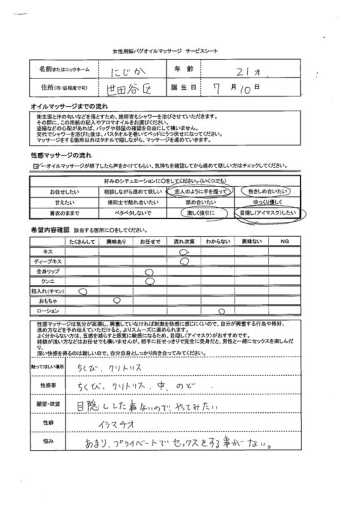 女性用脳バグオイルマッサージ サービスシート
名前またはニックネーム にじか 年齢 21才
住所(市・区程度で可) 世田谷区 誕生日 7月10日
オイルマッサージまでの流れ
衛生面と汗の匂いなどを落とすため、施術者もシャワーを浴びさせていただきます。
その間に、この用紙の記入やアロマオイルをお選びください。
盗撮などの心配があれば、バッグや部屋の確認を自由にして構いません。
交代でシャワーを浴びた後は、バスタオルを巻いてベッドにうつ伏せになってください。
マッサージをする箇所以外はタオルで隠しながら、マッサージを進めていきます。
性感マッサージの流れ
オイルマッサージが終了したら声をかけてもらい、気持ちを確認してから進めて欲しい方はチェックしてください。
好みのシチュエーションに○をしてください。(いくつでも)
お任せしたい 相談しながら進めて欲しい 恋人のように手を握って 抱きしめ合いたい
甘えたい 彼同士で触れ合いたい 舐め合いたい ゆっくり優しく
着衣のままで ベタベタしないで 激しく強引に 目隠し(アイマスク)したい
希望内容確認 該当する箇所に○をしてください。
たくさんして 興味あり お任せで 流れ次第 わからない 興味ない NG
キス ○
ディープキス ○
全身リップ ○
クンニ ○
指入れ(手マン) ○
おもちゃ ○
ローション ○
性感マッサージは気分が高揚し、興奮していなければ刺激を快感に感じにくいので、自分が興奮する行為や格好、
進め方などを予め伝えていただけると、よりスムーズに進められます。
よく分からない方は、五感を減らすと感覚に敏感になるため、目隠し(アイマスク)がおすすめです。
経験が浅い方などはお任せでも構いませんが、相手に任せっきりで完全に受身だと、男性と一緒にセックスを楽しんだり、
深い快感を得るのは難しいので、自分自身としっかり向き合ってみてください。
触ってほしい場所 ちくび、クリトリス
性感帯 ちくび、クリトリス、中、のど
願望・欲望 目隠しした事ないので、やってみたい
性癖 イラマチオ
悩み あまり、プライベートでセックスをする事がない。